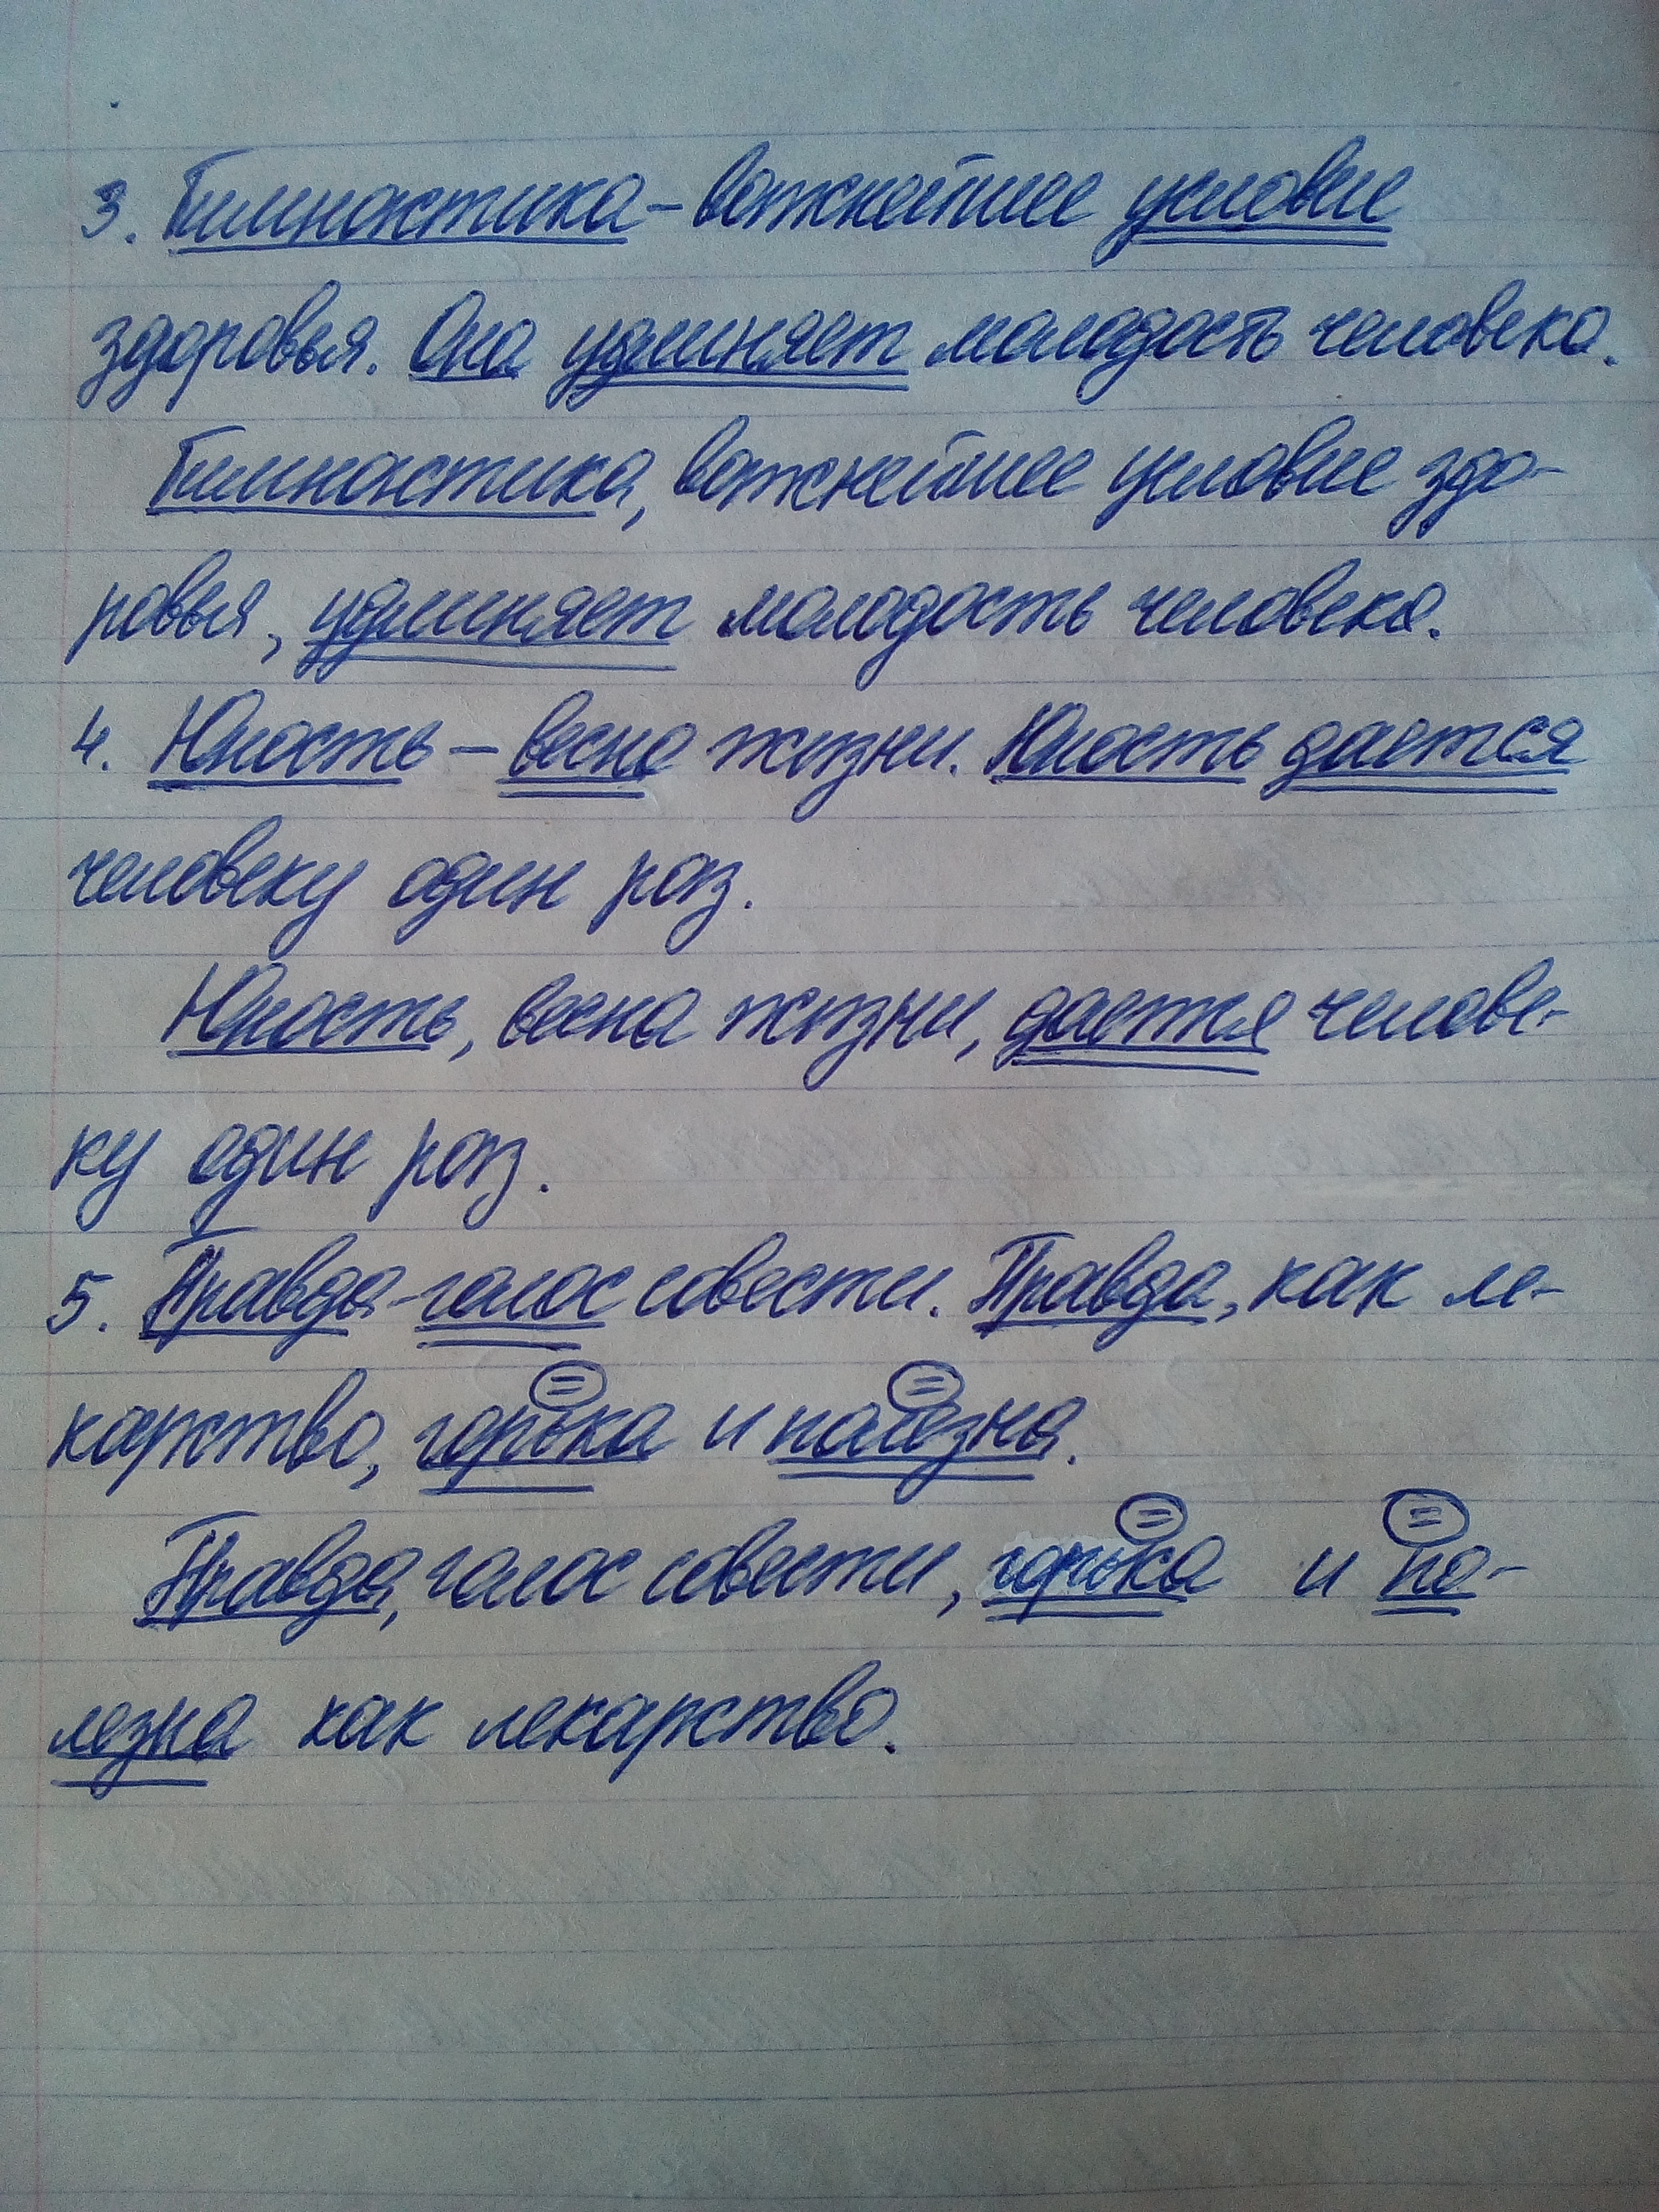 3. Гимнастика – важнейшее условие
здоровья. Она удлиняет молодость человека.
Гимнастика, важнейшее условие здо-
ровья, удлиняет молодость человека.
4. Юность – весна жизни. Юность дается
человеку один раз.
Юность, весна жизни, дается челове-
ку один раз.
5. Правда - голос совести. Правда, как ле-
карство, горька и полезна.
Правда, голос совести, горька и по-
лезна как лекарство.